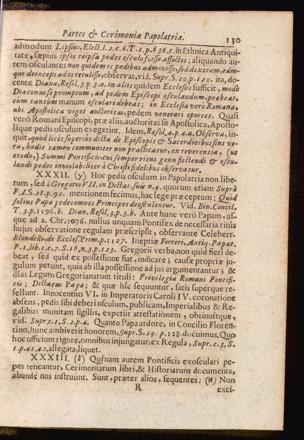 Partes & Cerimoniæ Papolatriæ. 130
admodum Lipsius, Elect. l. 2. c. 6. T. 1. p. 636. r. In Ethnica Antiqui-
tate, sæpius ipsos reipsa pedes osculo fuisse affectos; aliquando au-
tem osculantes non quidem os pedibus admovisse, sed dextram, eam-
que deinceps ad os retulisse, observat, vid. Supr. S. 20. p. 120. ita, do-
cente Diana, Resol. 3. p. 3. a. in aliis quidem Ecclesiis sufficit, modò
Diaconus sit promptum, ad pedem Episcopi osculandum, præbeat,
cum tantùm manum osculari debeat; in Ecclesia verò Romana,
ubi Apostolica viget auctoritas, pedem venerari oportet. Quasi
verò Romani Episcopi, præ aliis, auctoritas sit Apostolica, Aposto-
lique pedis osculum exegerint. Idem, Resol. 4. p. 4. a. Observa, in-
quit, quòd licèt superiùs dicta de Episcopis & Sacerdotibus sint ve-
ra, hodie tamen communiter non practicatur, ex reverentia, (ut
credo,) Summi Pontificis, cui semper ritus genuflectendi & oscu-
landi pedes inviolabiliter à Christi fidelibus observatur.
XXXII. (y) Hoc pedis osculum in Papolatria non libe-
rum, sed à Gregorio VII. in Dictat. suis n. 9. quorum etiam Suprà
P. 1. S. 28. p. 92. mentionem fecimus, hac lege præceptum; Quòd
solius Papæ pedes omnes Principes deosculentur. Vid. Bin. Concil.
T. 3. p. 1196. b. Dian. Resol. 3. p. 3. b. Ante hunc verò Papam, us-
que ad a. Chr. 1076. nullus unquam Pontifex de necessaria ritûs
hujus observatione regulam præscripsit, observante Celeberr.
Blondello, de Eccles. Prim. p. 1127. Ineptit Ferreri, Antiq. Papat.
P. 1. lib. 1. c. 7. S. 16. n. 3. p. 123. Gregorii verba, non quid fieri de-
beat, sed quid ex possessione fiat, indicare; causæ propriæ ju-
gulum petunt, quia ab illa possessione ad jus argumentantur; &
illas Legum Gregorianarum tituli: Privilegia Romani Pontifi-
cis; Dictatus Papæ; & quæ hîc sequuntur, satis superque re-
fellunt. Innocentius VI. in Imperatoris Caroli IV. coronatione
absens, pedis sibi deberi osculum, publicam, Imperialibus & Re-
galibus munitam sigillis, expetiit attestationem, obtinuitque,
vid. Supr. c. 1. S. 2. p. 4. Quanto Papa ardore, in Concilio Floren-
tino, hunc ambiverit honorem, Supr. S. 29. p. 128. docuimus. Quo
hoc officium rigore, omnibus injungatur, ex Regula, Supr. c. 3. S.
1. p. 41. 42. allegata, liquet.
XXXIII. (z) Quinam autem Pontificis exosculari pe-
pes teneantur, Cerimoniarum libri, & Historiarum documenta,
abundè nos instruunt. Sunt, præter alios, sequentes: (α) Non
R exci-